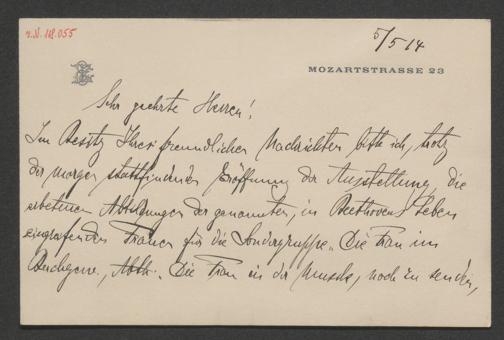 5/5 14
MOZARTSTRASSE 23
Sehr geehrte Herren!
Im Besitz Ihrer freundlichen Nachrichten bitte ich, trotz
der morgen stattfindenden Eröffnung der Ausstellung, die
erbetenen Abbildungen der genannten, in Beethovens Leben
eingreifenden Frauen für die Sondergruppe „Die Frau im
Buchgew., Abth. „Die Frau in der Musik, noch zu senden,